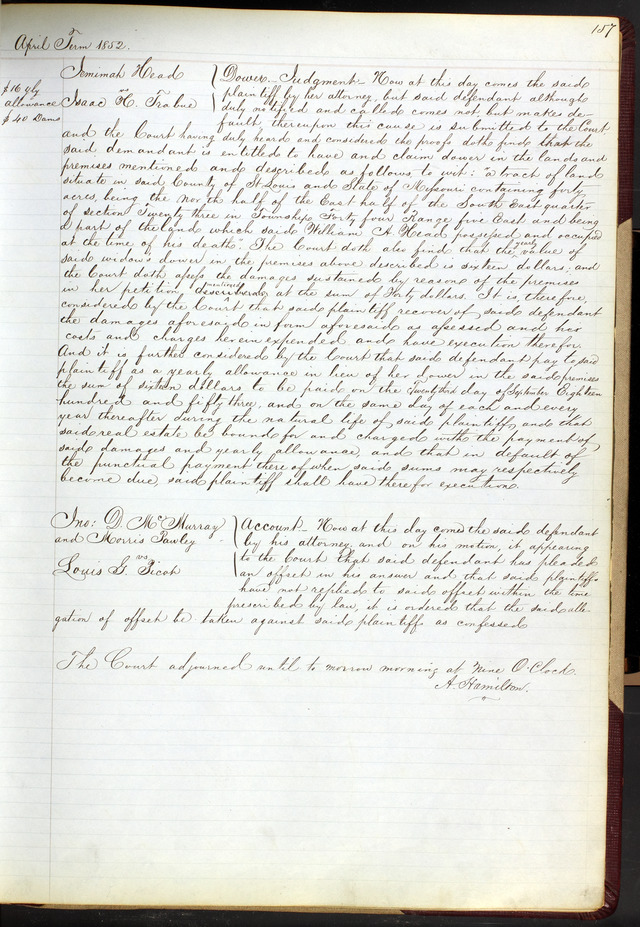 157
April Term 1852.
$16 yly
allowance
$40 Dams
Jemimah Head
vs
Isaac H. Trabue
Dower_ Judgment_ Now at this day comes the said
plaintiff by her attorney, but said defendant although
duly notified and called comes not, but makes de-
fault, thereupon this cause is submitted to the Court
and the Court having duly heard and considered the proofs doth find that the
said demandant is entitled to have and claim dower in the lands and
premises mentioned and described as follows to wit: "a tract of land
situate in said County of St Louis and State of Missouri containing forty
acres, being the North half of the East half of the South East quarter
of section Twenty three in Township Forty four Range five East and being
a part of the land which said William A. Head possessed and occupied
at the time of his death". The Court doth also find that the yearly value of
said widows dower in the premises above described is sixteen dollars; and
the Court doth assess the damages sustained by reason of the premises
in her petition mentioned at the sum of Forty dollars. It is, therefore,
considered by the Court that said plaintiff recover of said defendant
the damages aforesaid in form aforesaid as assessed and her
costs and charges herein expended and have execution therefor.
And it is further considered by the Court that said defendant pay to said
plaintiff as a yearly allowance in lieu of her dower in the said premises
the sum of sixteen dollars to be paid on the Twenty third day of September Eighteen
hundred and fifty three, and on the same day of each and every
year thereafter during the natural life of said plaintiff, and that
said real estate be bound for and charged with the payment of
said damages and yearly allowance, and that in default of
the punctual payment thereof when said sums may respectively
become due, said plaintiff shall have therefor execution.
Jno: D. McMurray
and Morris Pawley
vs
Louis G. Picot
Account_ Now at this day comes the said defendant
by his attorney, and on his motion, it appearing
to the Court that said defendant has pleaded
an offset in his answer and that said plaintiffs
have not replied to said offset within the time
prescribed by law, it is ordered that the said alle-
gation of offset be taken against said plaintiffs as confessed
The Court adjourned until to morrow morning at Nine O'Clock.
A. Hamilton.